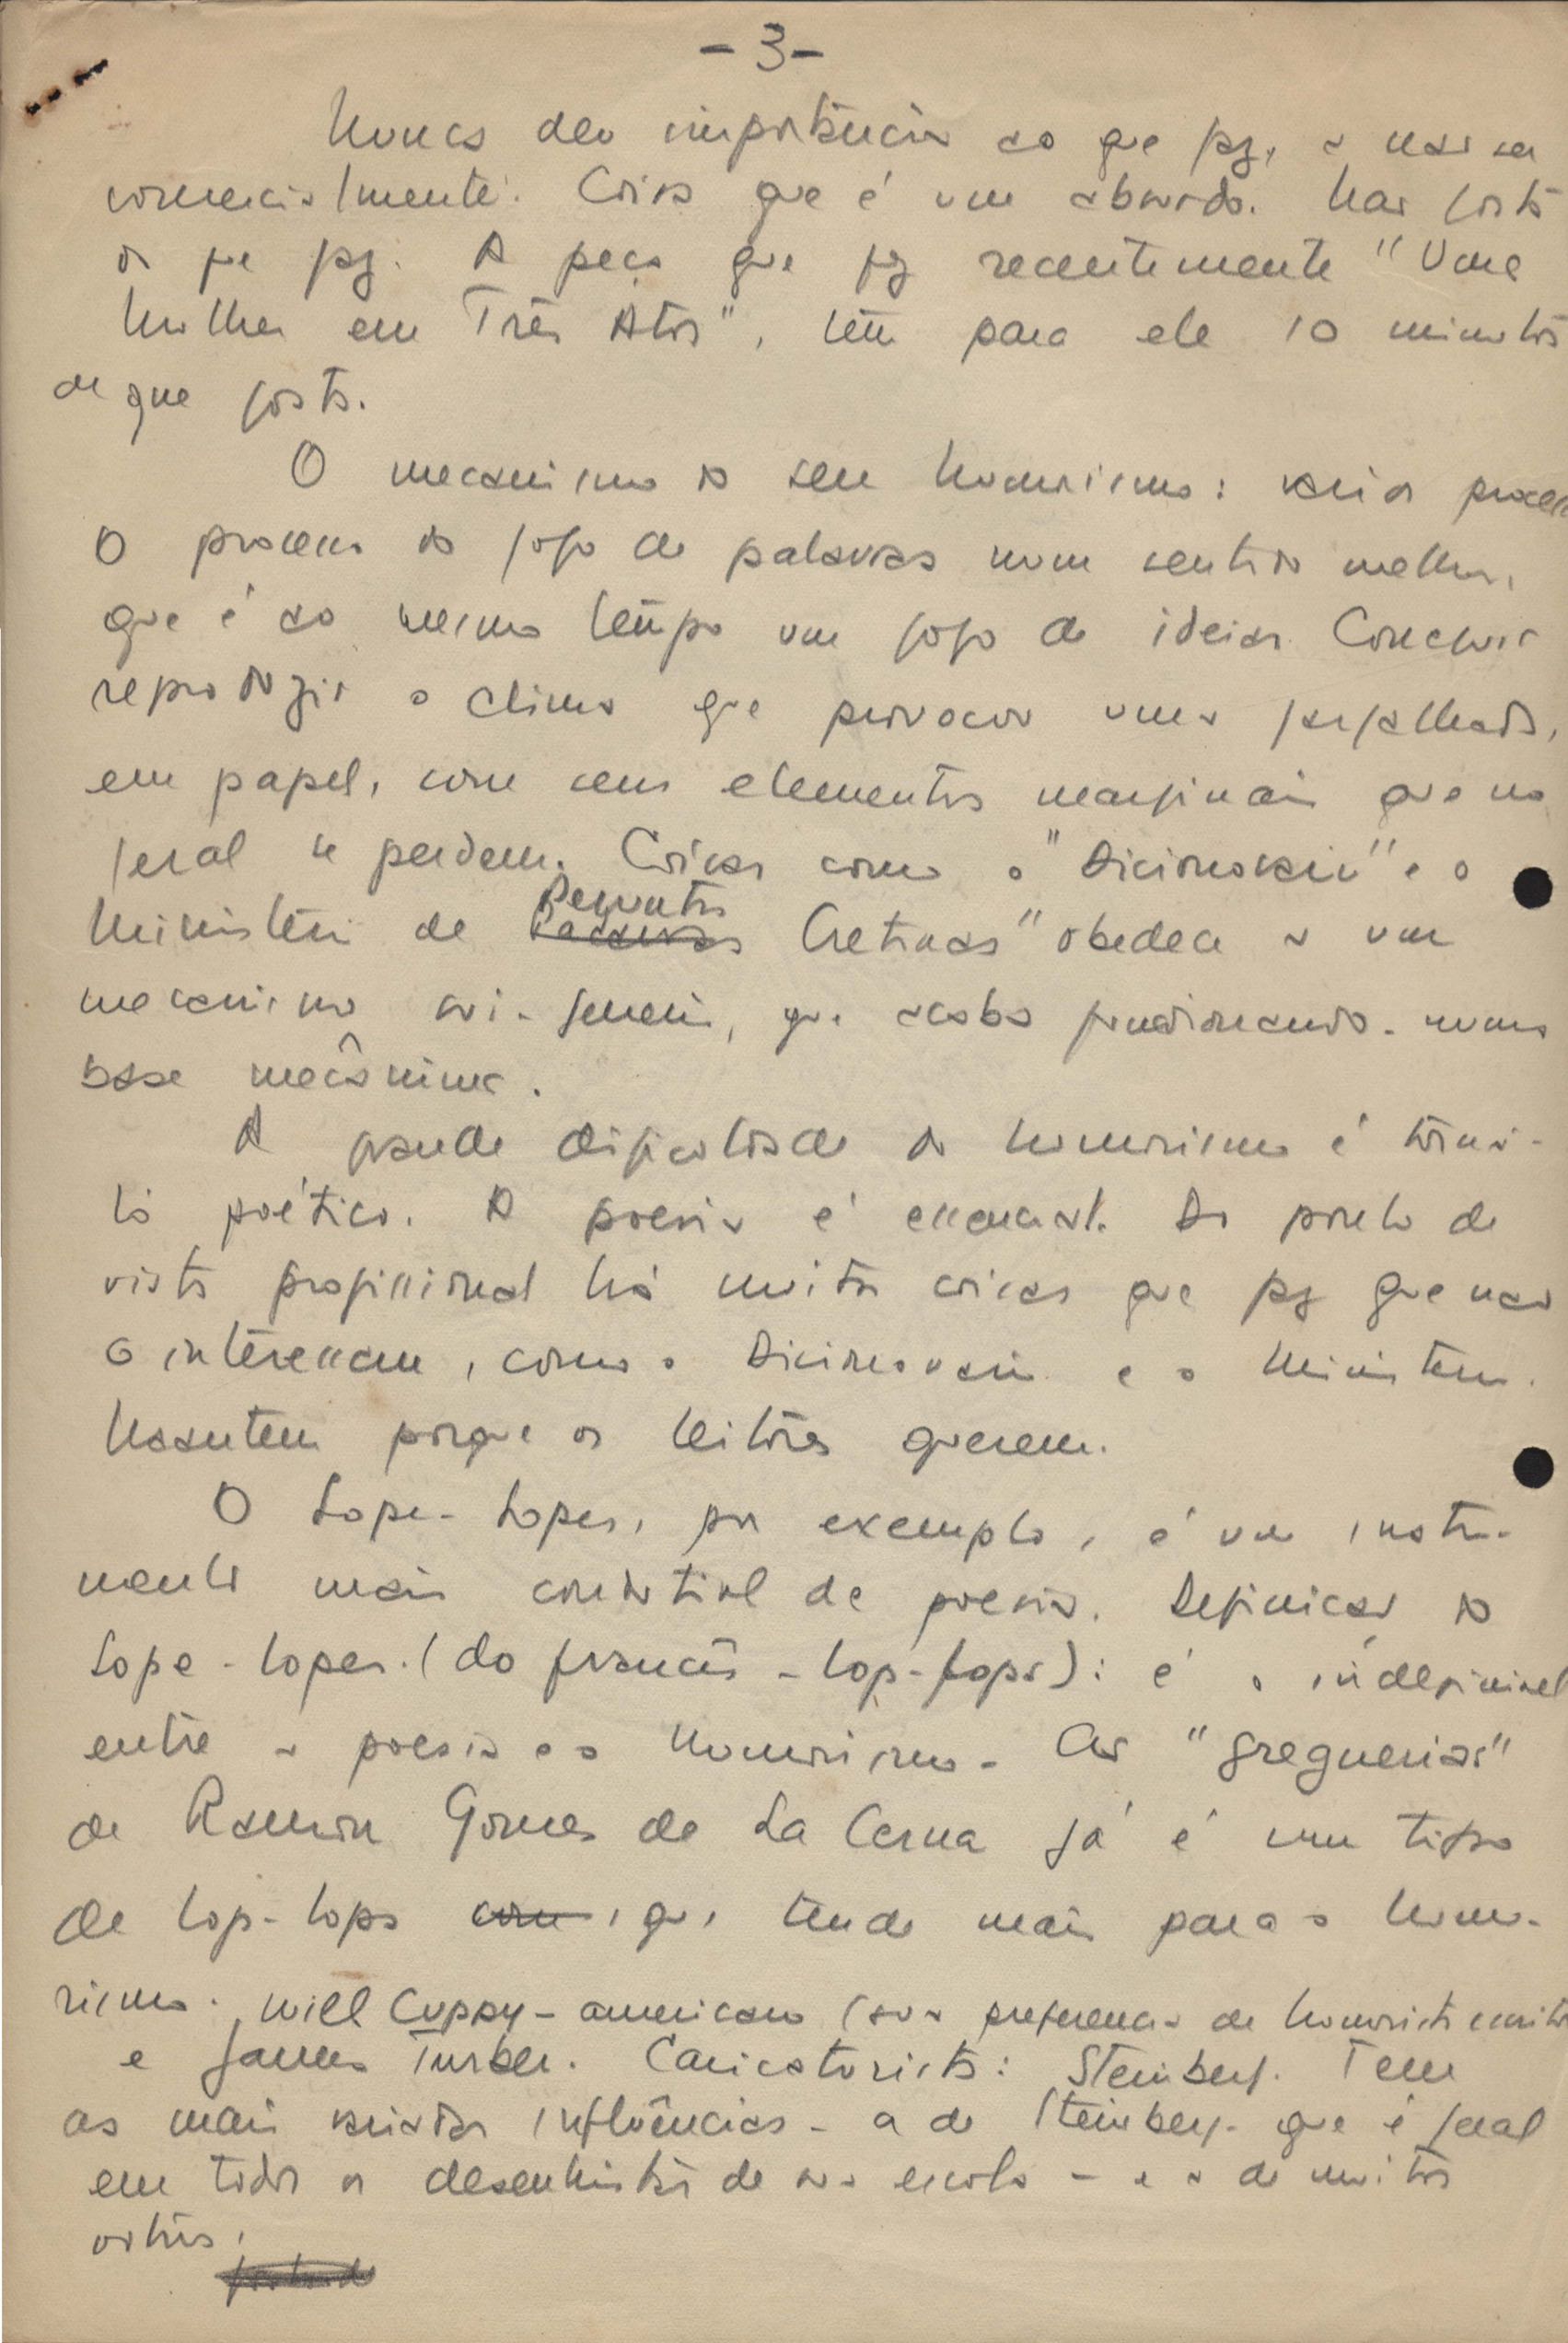 - 3 -
Nunca deu importância ao que faz, a não ser
comercialmente. Coisa que é um absurdo. Mas gosta
do que faz. A peça que fez recentemente "Uma
Mulher em Três Atos", tem para ele 10 minutos
de que gosta.
O mecanismo do seu humorismo: vários processos
O processo do jogo de palavras num sentido melhor,
que é ao mesmo tempo um jogo de ideias. Conseguir
reproduzir o clima que provocou uma gargalhada,
em papel, com seus elementos marginais que no
geral se perdem. Coisas como o "Dicionovário" e o
Ministério de Perguntas Cretinas" obedece a um
mecanismo sui-generis, que acaba funcionando numa
base mecânima.
A grande dificuldade do humorismo é torná-
lo poético. A poesia é essencial. Do ponto de
vista profissional há muitas coisas que faz que não
o interessam, como o Dicionovário e o Ministério.
Mantem porque os leitores querem.
O Lope-Lopes, por exemplo, é um instru-
mento mais condutível de poesia. Definição do
Lope-Lopes. (do francês - lop-lops): é o indefinível
entre a poesia e o humorismo - As "greguerias"
de Ramon Gomes de La Cerna já é um tipo
de lop-lops com, que tende mais para o humo-
rismo. Will Cuppy - americano (sua preferencia de humorista escritor
e James Turber. Caricaturista: Steinberg. Tem
as mais variadas influências - a de Steinberg - que é geral
em todos os desenhistas de sua escola - e a de muitos
outros.